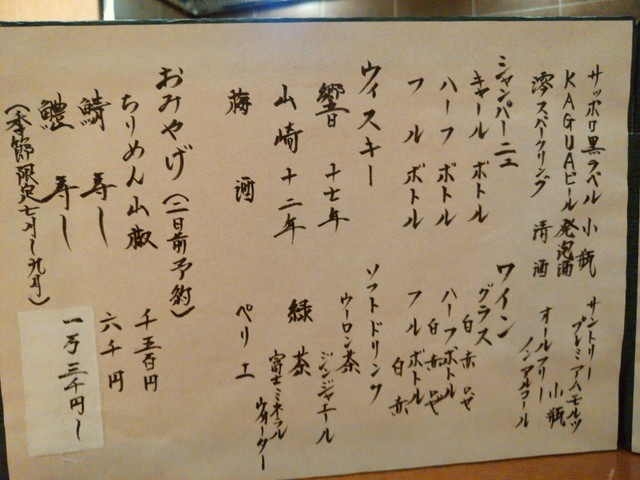 サッポロ黒ラベル 小瓶
KAGUAビール 発泡酒
澪スパークリング 清酒
サントリー
プレミアムモルツ
小瓶
オールフリー
ノンアルコール
シャンパーニュ
キャールボトル
ハーフボトル
フルボトル
ワイン
グラス 白 赤 ロゼ
ハーフボトル 白 赤 ロゼ
フルボトル 白 赤
ウィスキー
響 十七年
山崎 十二年
梅酒
ソフトドリンク
ウーロン茶
ジンジャエール
緑茶
富士ミネラル
ウォーター
ペリエ
おみやげ(二日前予約)
ちりめん山椒 千五百円
鯖寿し 六千円
鱧寿し 一万三千円〜
(季節限定七月〜九月)